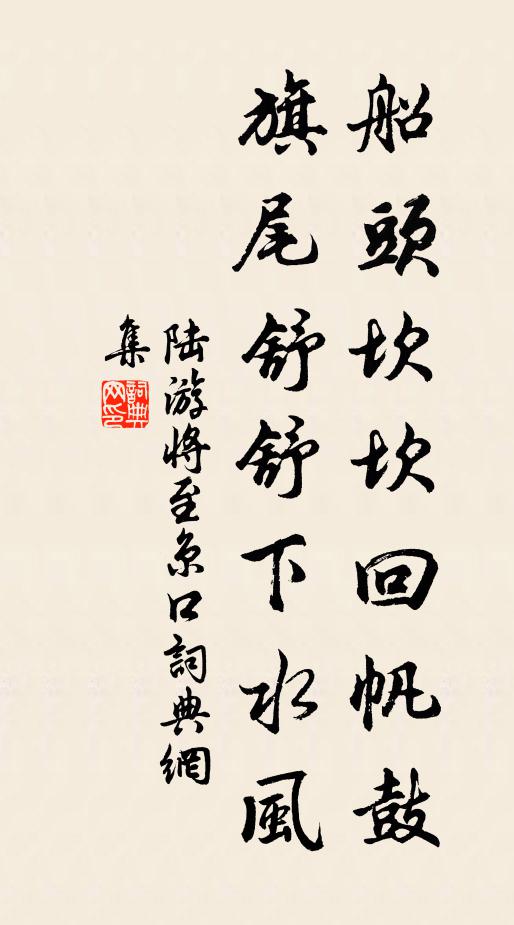 船頭坎坎回帆鼓
旗尾舒舒下水風
陆游将至京口詞典網
集
詞典
网印